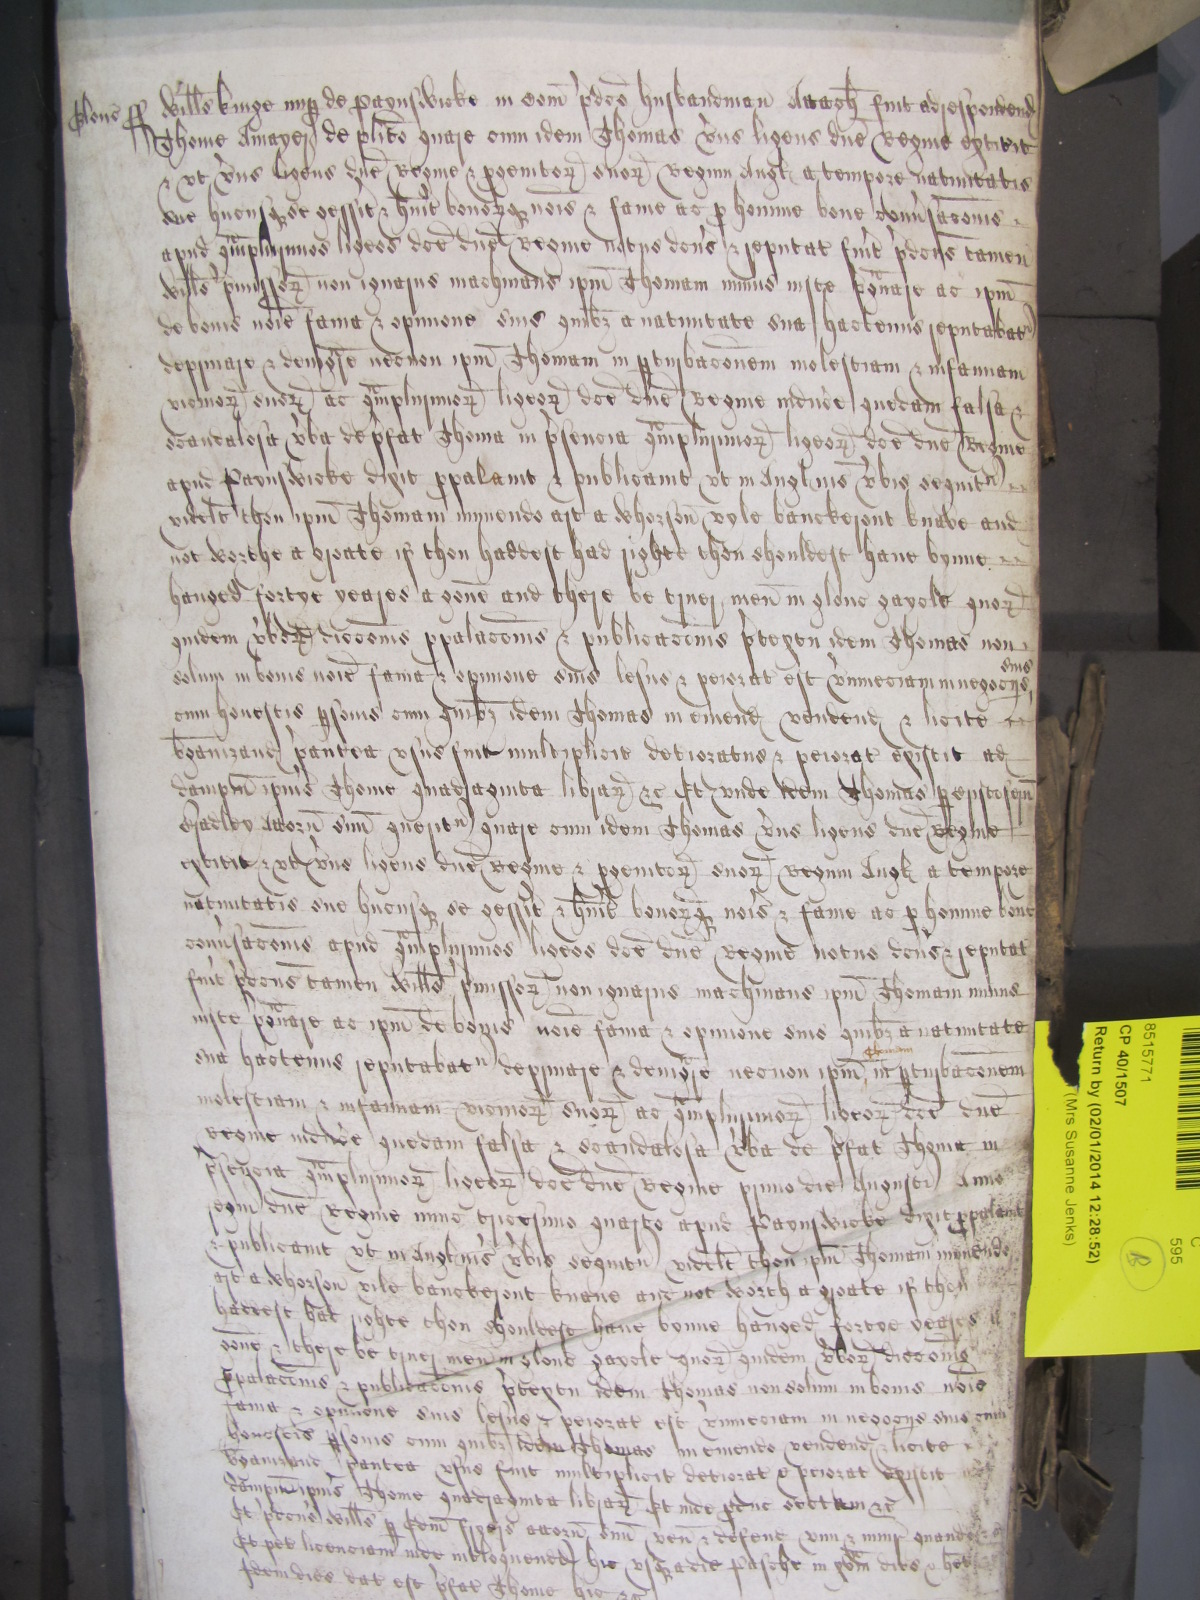 Glouc ss Willms kinge nup de Paynswicke in Com pdco husbandman Attach fuit ad respondend
Thome Mayes de plito quare cum idem Thomas verus ligeus dne Regine extitit
& ut verus ligeus dne Regine & pgenitor suor Regum Angl a tempore natiuitatis
sue hucusq se gessit & huit bonorq nois & fame ac p homine bone conusacois
apud qmplurimos ligeos dce dne Regine notus dcus & reputat fuit pdcus tamen
Willms pmissor non ignarus machinans ipm Thomam minus iuste pgrauare ac ipm
de bonis noie fama & opinione suis quibz a natiuitate sua hactenus reputabat
deprauare & denigre necnon ipm Thomam in pturbaconem molestiam & infamiam
vicinor suor ac qmplurimor ligeor dce dne Regine inducere quedam falsa &
scandalosa vba de pfat Thoma in psencia qmplurimor ligeor dce dne Regine
apud Paynswicke dixit ppalauit & publicauit ut in Anglicis vbis sequit
videlt thou ipm Thomam innuendo art a whorson vyle banckerout knave and
not worthe a groate if thou haddest had righte thou shouldest haue bynne
hanged fortye yeares a gone and there be truer men in glouc gayole quor
quidem vbor diccois ppalacois & publicacois ptextu idem Thomas non
solum in bonis noie fama & opinione suis lesus & peiorat est verumeciam in negocijs suis
cum honestis psonis cum quibz idem Thomas in emend vendend & licite
bganizand pantea usus fuit multiplicit deterioratus & peiorat existit ad
dampnu ipius Thome quadraginta librar &c Et unde idem Thomas p
Bradley Attorn suu querit quare cum idem Thomas verus ligeus dne Regine
extitit & ut verus ligeus dne Regine & pgenitor suor Regum Angl a tempore
natiuitatis sue hucusq se gessit & huit bonorq nois & fame ac p homine bone
conusacois apud qmplurimos ligeos dce dne Regine notus dcus & reputat
fuit pdcus tamen Willms pmissor non ignarus machinans ipm Thomam minus
iuste pgrauare ac ipm de bonis noie fama & opinione suis quibz a natiuitate
sua hactenus reputabat deprauare & denigre necnon ipm Thomam in pturbaconem
molestiam & infamiam vicinor suor ac qmplurimor ligeor dce dne
Regine inducere quedam falsa & scandalosa vba de pfat Thoma in
psencia qmplurimor ligeor dce dne Regine primo die Augusti Anno
regni dne Regine nunc tricesimo quarto apud Paynswicke dixit ppalauit
& publicauit ut in Anglicis vbis sequitu videlt thou ipm Thomam innuendo
art a whorson vile banckerout knaue and not worth a groate if thou
haddest had righte thou shouldest haue bynne hanged fortye yeares a
gone & there be truer men in glouc gayole quor quidem vbor diccois
ppalacois & publicacois ptextu idem Thomas non solum in bonis nois
fama & opinione suis lesus & peiorat est verumeciam in negocijs suis cum
honestis psonis cum quibz idem Thomas in emendo vendend & licite
bganizand pantea usus fuit multiplicit deteriorat & peiorat existit
dampnu ipius Thome quadraginta librar Et inde pduc sectam &c
Et pdcus Willms p Attorn suu ven & defend vim & iniur quando &c
Et pet licenciam inde interloquend hic usq a die Pasche in dies & het
Idem dies dat est pfat Thome hic &c
8515771
CP 40/1507
Return by (02/01/2014 12:28:52)
(Mrs Susanne Jenks)
595